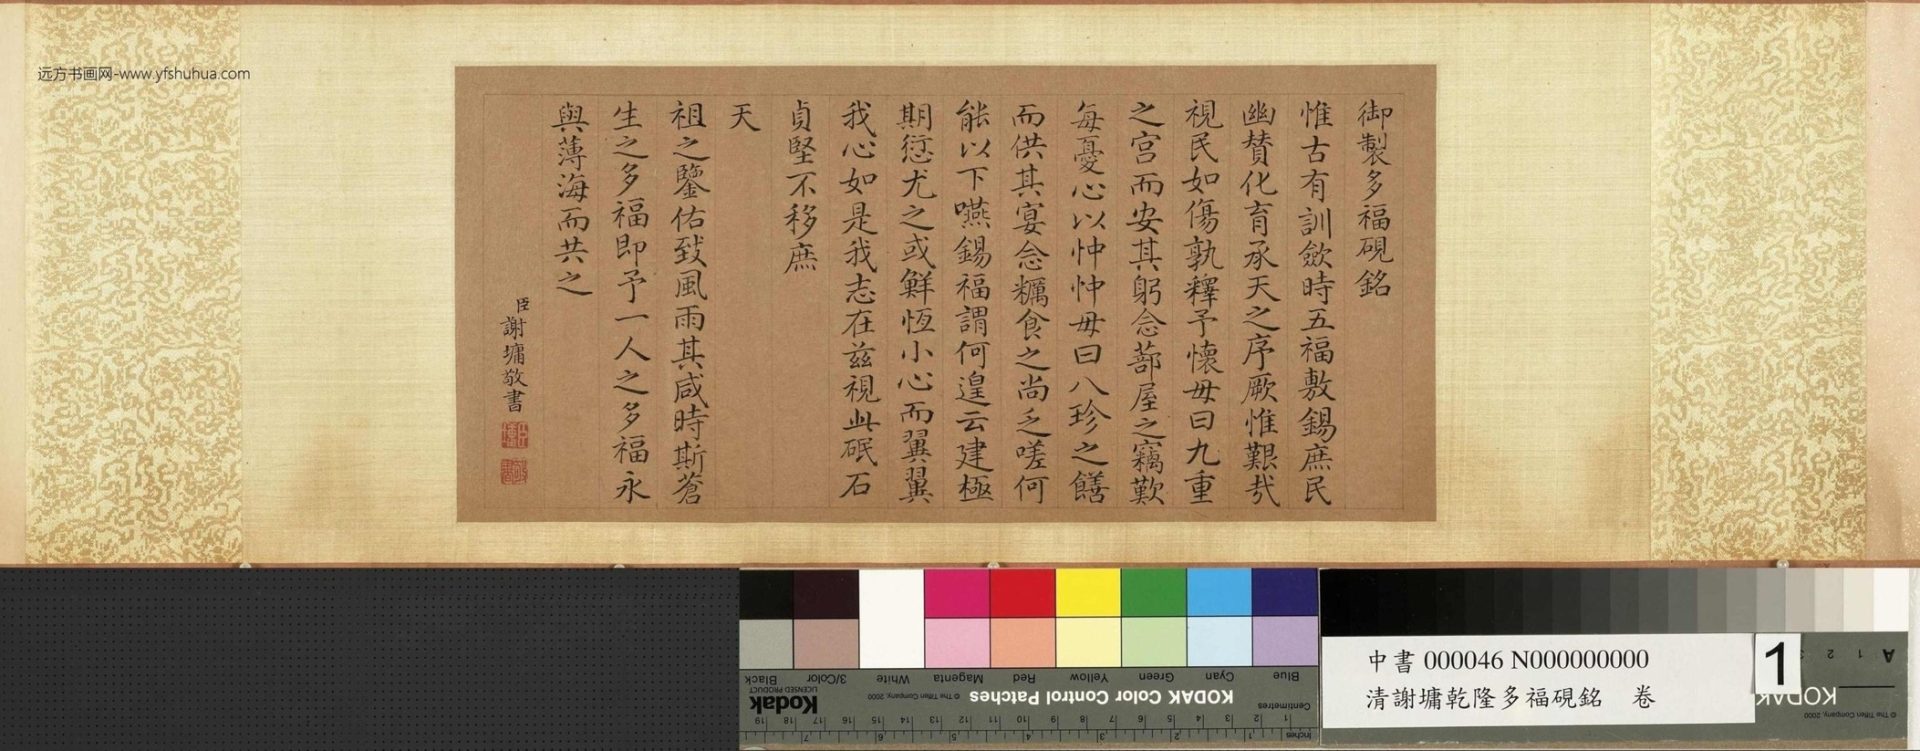 远方书画网-www.yfshuhua.com
御製多福硯銘
惟古有訓斂時五福敷錫庶民
幽贊化育承天之序厥惟艱哉
視民如傷孰釋予懷毋曰九重
之宫而安其躬念蔀屋之竊歎
每憂心以忡忡毋曰八珍之饍
而供其宴念糲食之尚乏嗟何
能以下嚥錫福謂何遑云建極
期愆尤之或鮮恆小心而翼翼
我心如是我志在兹視此砥石
貞堅不移庶
天
祖之鑒佑致風雨其咸時斯蒼
生之多福即予一人之多福永
與薄海而共之
臣謝墉敬書
Blue Cyan Green Yellow Red Magenta White 3/Color Black
KODAK Color Control Patches
© The Tiffen Company, 2000
Kodak
LICENSED PRODUCT
Centimetres
1 2 3 4 5 6 7 8 9 10 11 12 13 14 15 16 17 18 19
Inches
1 2 3 4 5 6 7
中書 000046 N000000000
清謝墉乾隆多福硯銘 卷
1
A 1 2 3
KODAK
© The Tiffen Company, 2000